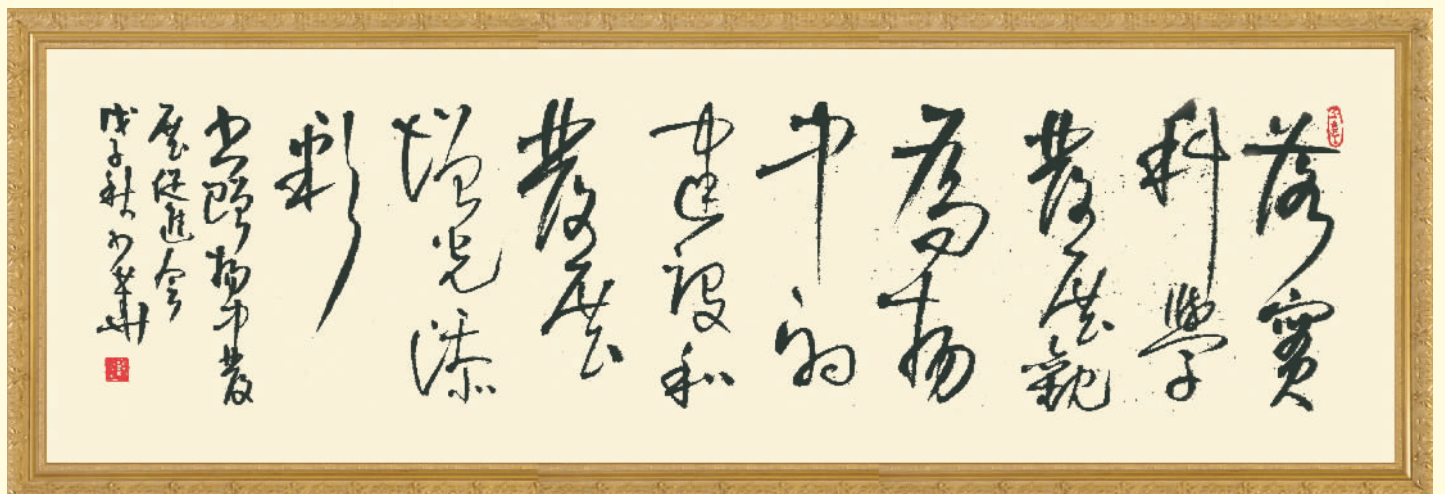 落實
科學
發展觀
為揚
中的
建設和
發展
增光添
彩
書贈揚中發
展促進會
戊子秋